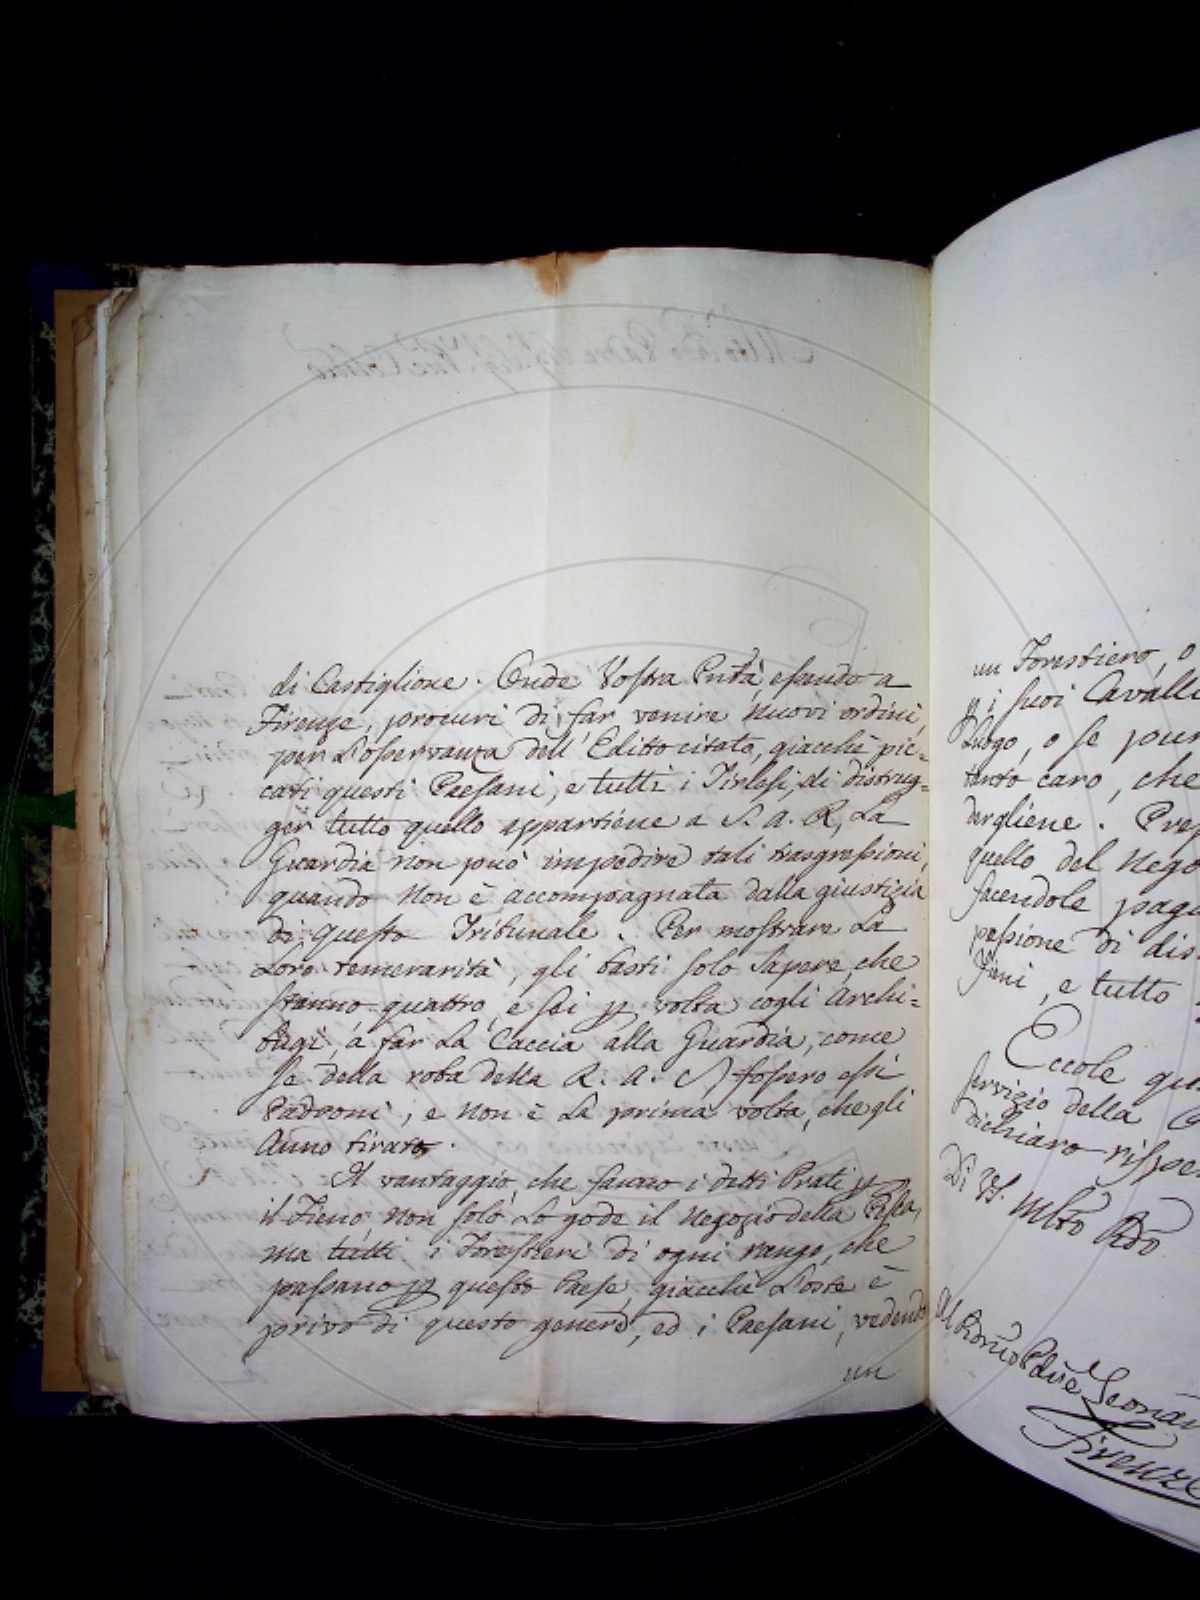 di Castiglione. Onde Vostra Pntà, essendo a
Firenze, procuri di far venire nuovi ordini,
per L'osservanza dell'Editto citato, giacchè pic=
cati questi Paesani, e tutti i Tirlesi, di distrug=
ger tutto quello appartiene a S. A. R., La
Guardia non può impedire tali trasgressioni,
quando non è accompagnata dalla giustizia
di questo Tribunale. Per mostrare La
Loro temerarità, gli basti solo sapere che
stanno quattro, e sei p volta cogli Archi=
bugi, à far La Caccia alla Guardia, come
se della roba della R. A. S. fossero essi
Padroni, e non è La prima volta, che gli
Anno tirato.
Il vantaggio, che fanno i detti Prati p
il Fieno non solo Lo gode il Negozio della Pesca,
ma tutti i Forestieri di ogni rango, che
passano p questo Paese, giacchè L'oste è
privo di questo genere, ed i Paesani, vedendo
un
un Forestiero, o
p i suoi Cavalli
Luogo, o se pur
tanto caro, che
dergliene. Pre
quello del Nego
facendole paga
passione di dis
Fieni, e tutto
Eccole qua
servizio della
dichiaro rispe
Di VS. Mlto Rdo
Firenze